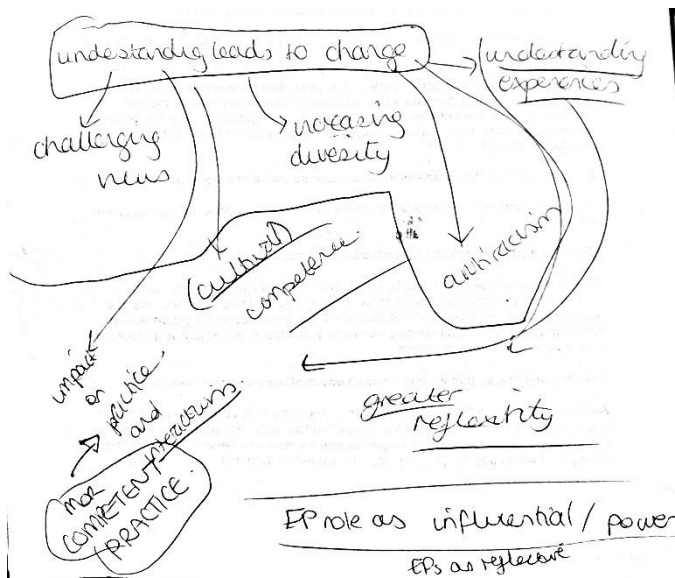 understanding leads to change
understanding
experiences
challenging
views
increasing
diversity
cultural
competence.
antiracism
impact
on
practice
and
interactions
more
COMPETENT
PRACTICE.
greater
reflexivity
EP role as influential / power
EPs as reflexive